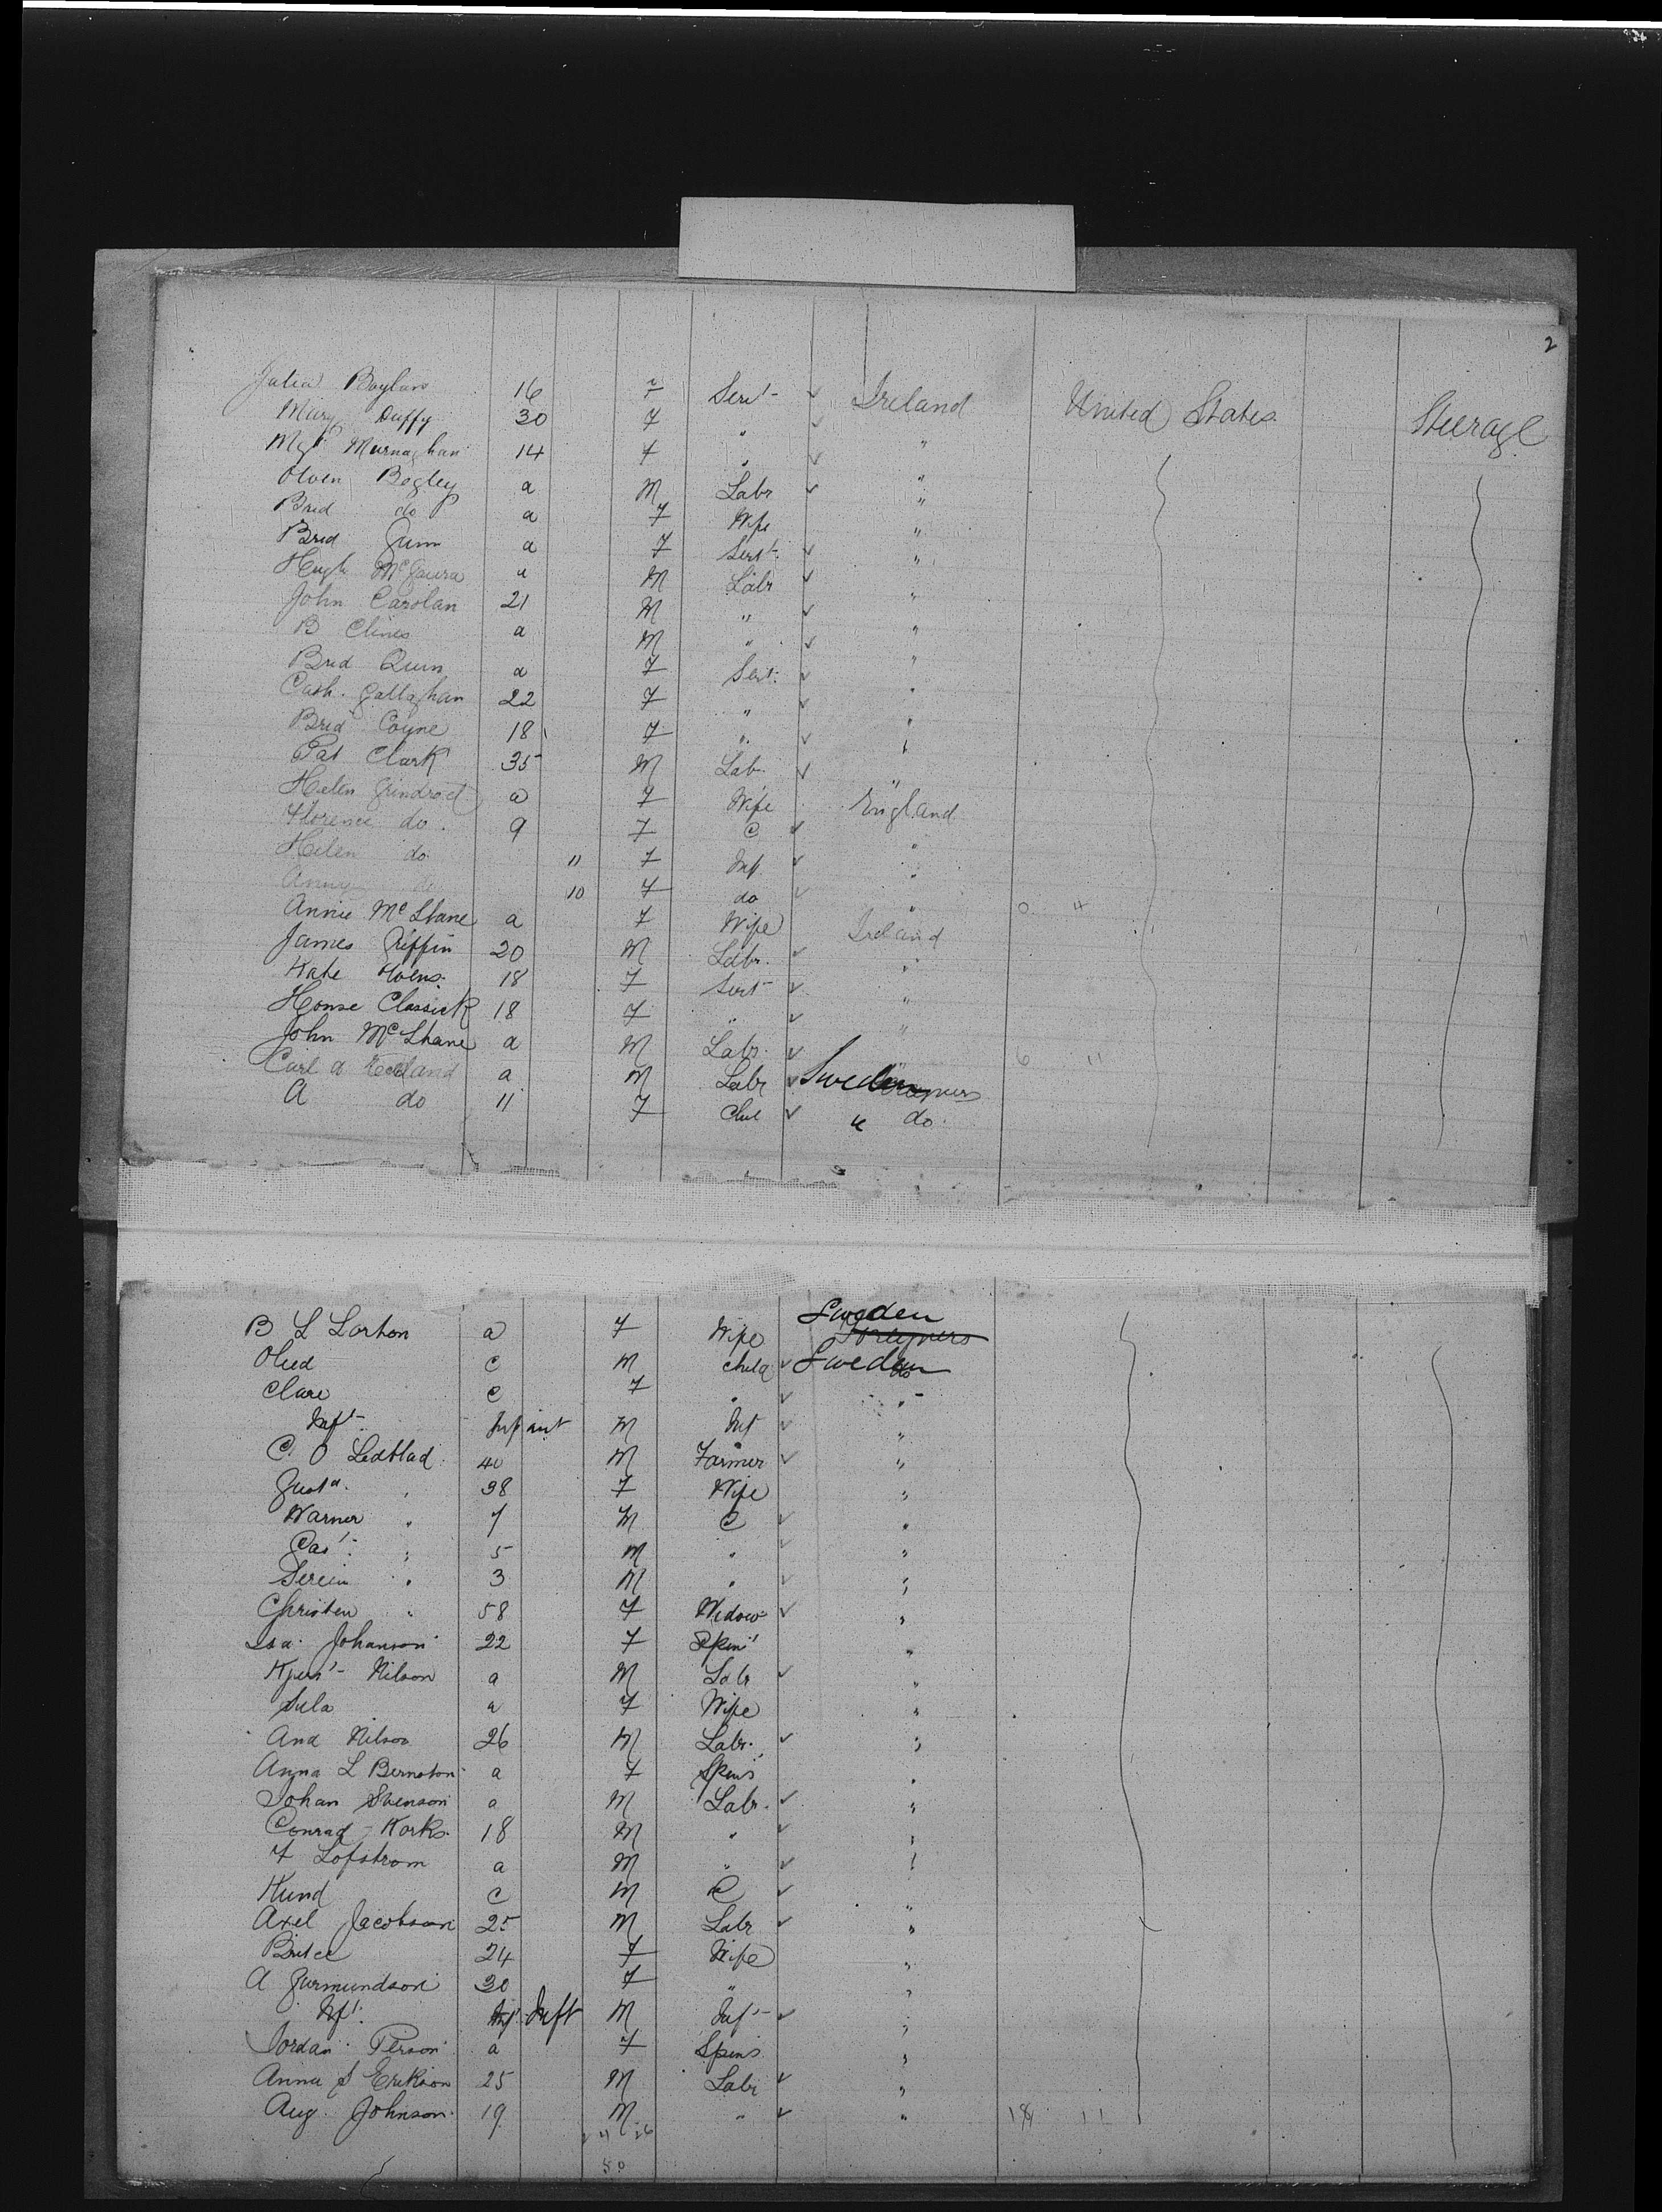 2
Julia Boylan 16 F Servt ✓ Ireland United States Steerage
Mary Duffy 30 F " ✓ "
Mgt Murnaghan 14 F " ✓ "
Owen Begley a M Labr ✓ "
Brid do a F Wife "
Brid Gunn a F Servt ✓ "
Hugh McGaura a M Labr ✓ "
John Carolan 21 M " ✓ "
B Clines a M " ✓ "
Brid Quin a F Servt ✓ "
Cath. Gallaghan 22 F " ✓ "
Brid Coyne 18 F " ✓ "
Pat Clark 35 M Lab ✓ "
Helen Grindrod a F Wife England
Florence do. 9 F C ✓ "
Helen do. 11 F Inf ✓ "
Anny do 10 F do ✓ " 0 4
Annie McShane a F Wife Ireland
James Griffin 20 M Labr. ✓ "
Kate Owens. 18 F Servt ✓ "
Honse Classick 18 F " ✓ "
John McShane a M Labr. ✓ " 6 11
Carl A a M Labr ✓ Sweden
A do 11 F Chil ✓ " do.
B L Lorton a F Wife Sweden Foreigners
Olud C M Child ✓ Sweden do
Clare C F " ✓ "
Inft Infant M Inf ✓ "
C. O Ledblad 40 M Farmer ✓ "
Gusta. " 38 F Wife "
Warner " 7 M C ✓ "
Cas " 5 M " ✓ "
" 3 M " ✓ "
Christen " 58 F Widow ✓ "
Johanson 22 F Spin "
Nilson a M Labr ✓ "
Sula a F Wife "
And Nilson 26 M Labr. ✓ "
Anna L Bernston a F Spins "
Johan Svenson a M Labr. ✓ "
Conrad Korks. 18 M " ✓ "
F Lofstrom a M " ✓ "
Kund C M C ✓ "
Axel Jacobson 25 M Labr ✓ "
24 F Wife "
A Gurmundson 30 F " "
Inft. Inf Inft M Inft ✓ "
Jordan Person a F Spins "
Anna S Erikson 25 M Labr ✓ "
Aug. Johnson. 19 M " ✓ " 11
24 26
50